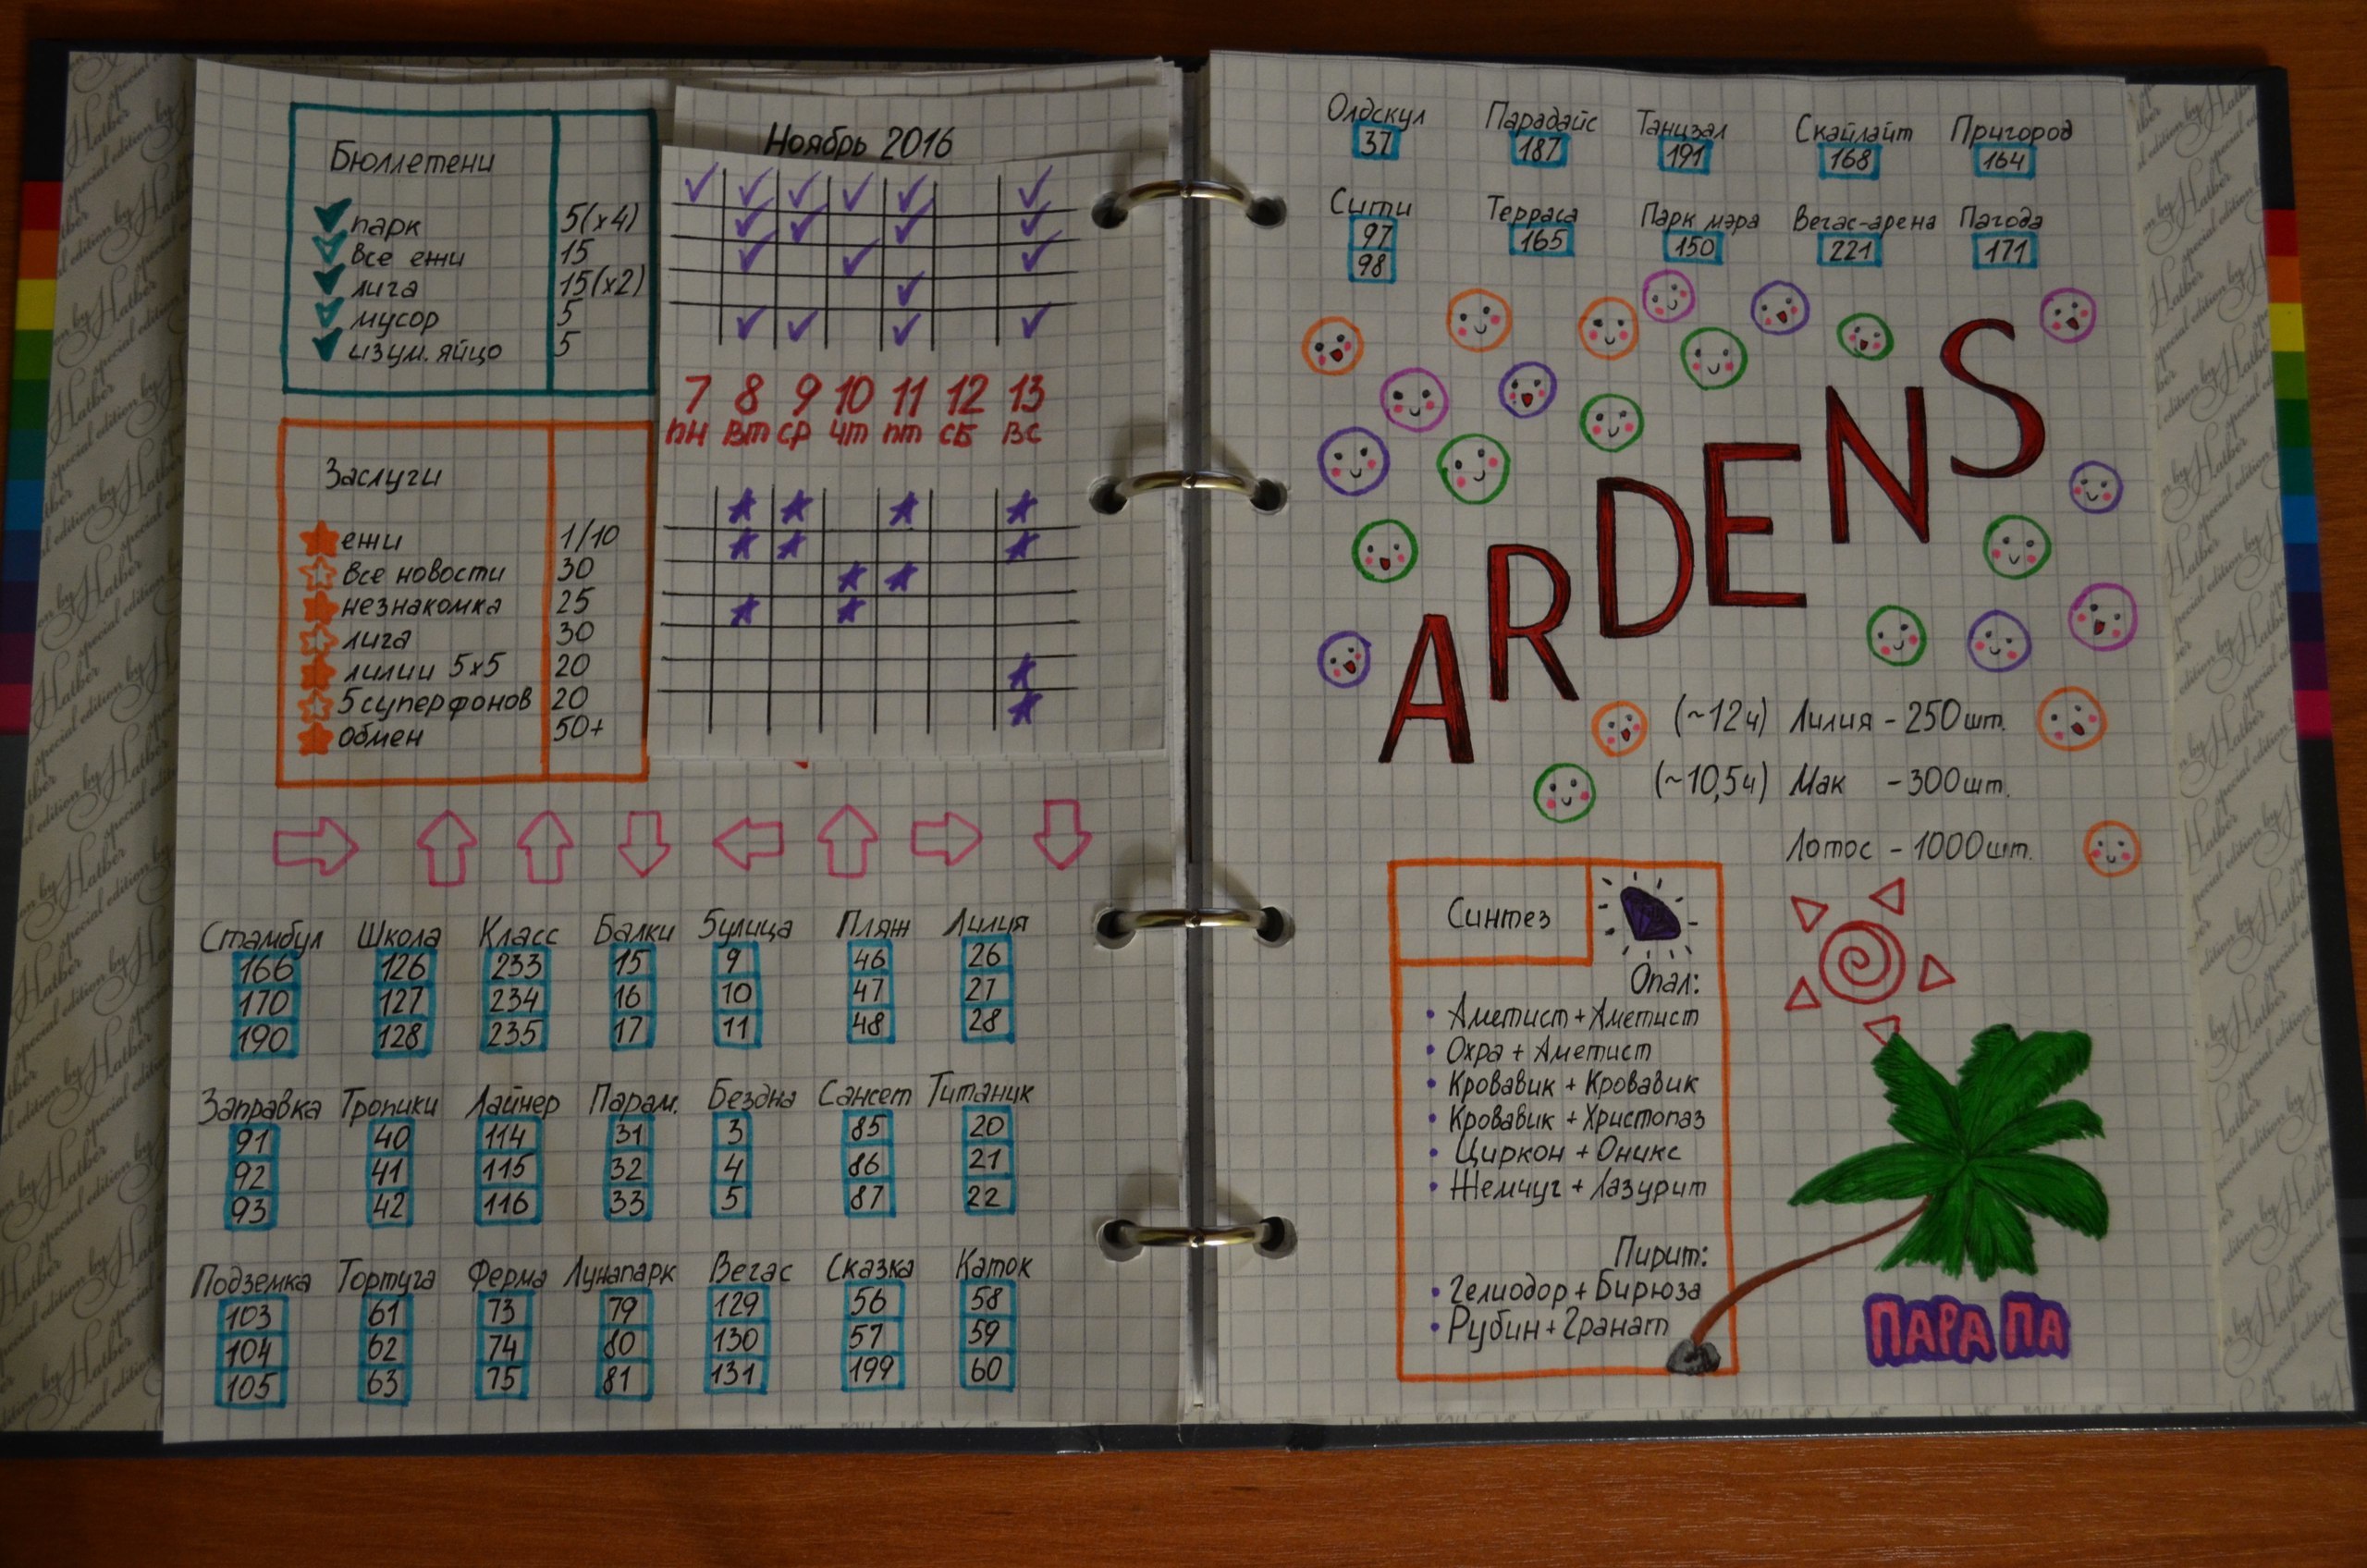 Бюллетени
парк 5(x4)
все ежи 15
лига 15(x2)
мусор 5
изум. яйцо 5
Ноябрь 2016
7 8 9 10 11 12 13
пн вт ср чт пт сб вс
Заслуги
ежи 1/10
все новости 30
незнакомка 25
лига 30
лилии 5x5 20
5 суперфонов 20
обмен 50+
Стамбул Школа Класс Балки 5улица Пляж Лилия
166 126 233 15 9 46 26
170 127 234 16 10 47 27
190 128 235 17 11 48 28
Заправка Тропики Лайнер Парам. Бездна Сансет Титаник
91 40 114 31 3 85 20
92 41 115 32 4 86 21
93 42 116 33 5 87 22
Подземка Тортуга Ферма Лунапарк Вегас Сказка Каток
103 61 73 79 129 56 58
104 62 74 80 130 57 59
105 63 75 81 131 199 60
Олдскул Парадайс Танцзал Скайлайт Пригород
37 187 191 168 164
Сити Терраса Парк мэра Вегас-арена Пагода
97 165 150 221 171
98
ARDENS
(~12ч) Лилия - 250шт.
(~10,5ч) Мак - 300шт.
Лотос - 1000шт.
Синтез
Опал:
• Аметист + Аметист
• Охра + Аметист
• Кровавик + Кровавик
• Кровавик + Христопаз
• Циркон + Оникс
• Жемчуг + Лазурит
Пирит:
• Гелиодор + Бирюза
• Рубин + Гранат
ПАРА ПА
special edition by Hatber